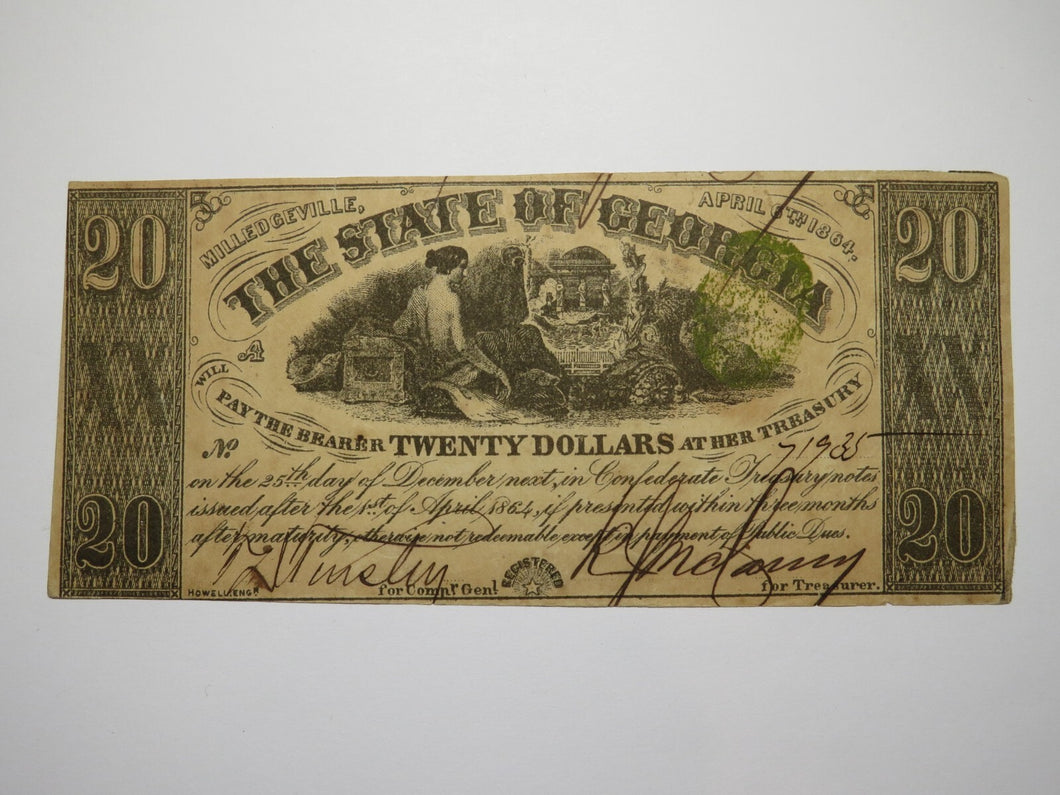 20
20
MILLEDGEVILLE,
APRIL 6TH 1864.
THE STATE OF GEORGIA
XX
XX
A
WILL
PAY THE BEARER TWENTY DOLLARS AT HER TREASURY
No
71935
on the 25th day of December next, in Confederate Treasury notes
issued after the 1st of April 1864, if presented within three months
after maturity, otherwise not redeemable except in payment of Public Dues.
20
20
HOWELL, ENGR
for Compr Genl
REGISTERED
for Treasurer.